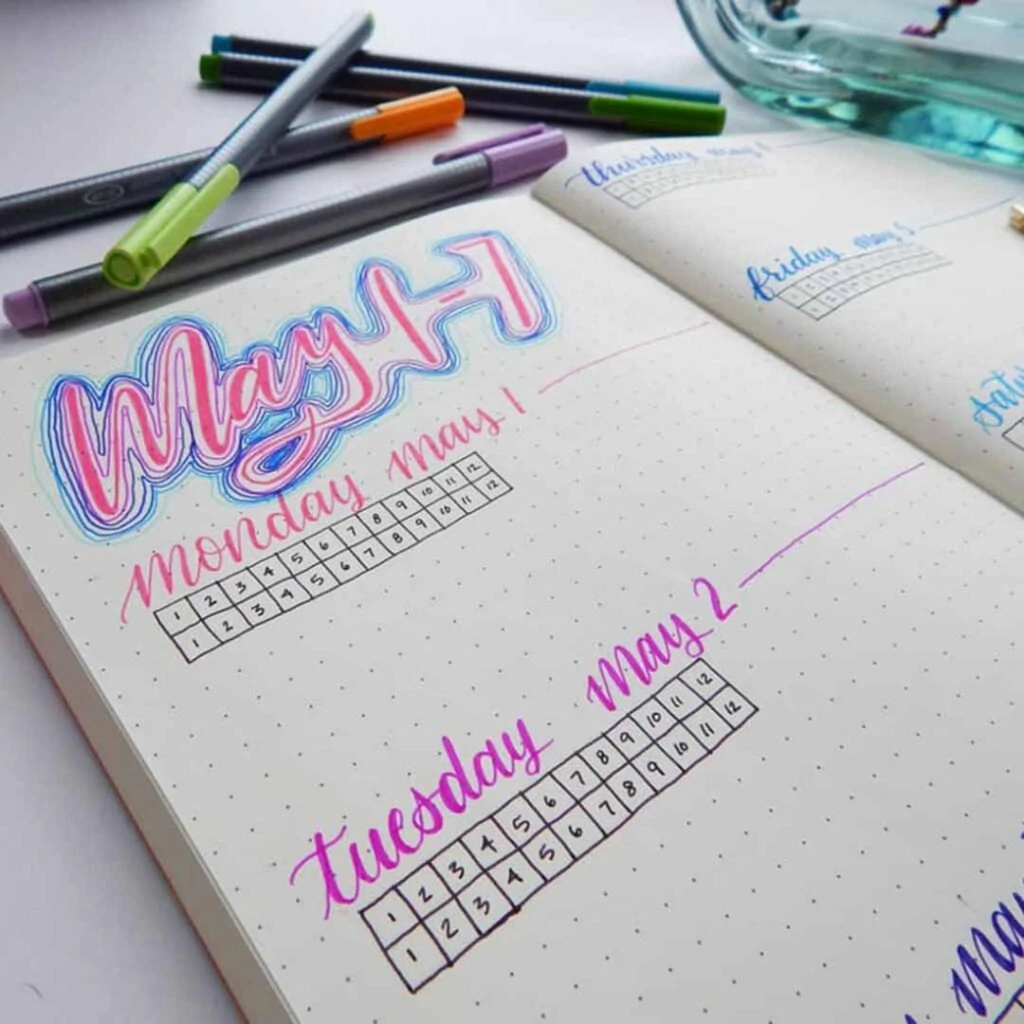 May 1-7
monday may 1
1 2 3 4 5 6 7 8 9 10 11 12
1 2 3 4 5 6 7 8 9 10 11 12
tuesday may 2
1 2 3 4 5 6 7 8 9 10 11 12
1 2 3 4 5 6 7 8 9 10 11 12
may
thursday may
friday may 5